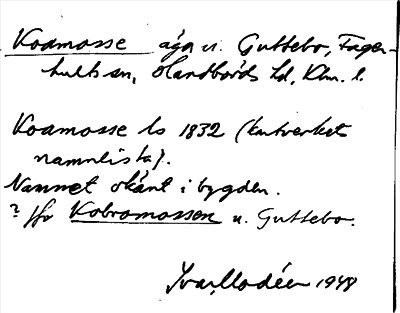 Koamosse äga u. Guttebo, Fager-
hults sn, Handbörds hd, Klm. l.
Koamosse ls 1832 (kartverket
namnlista).
Namnet okänt i bygden.
? jfr Kobromossen u. Guttebo.
Ivar Modéer 1948